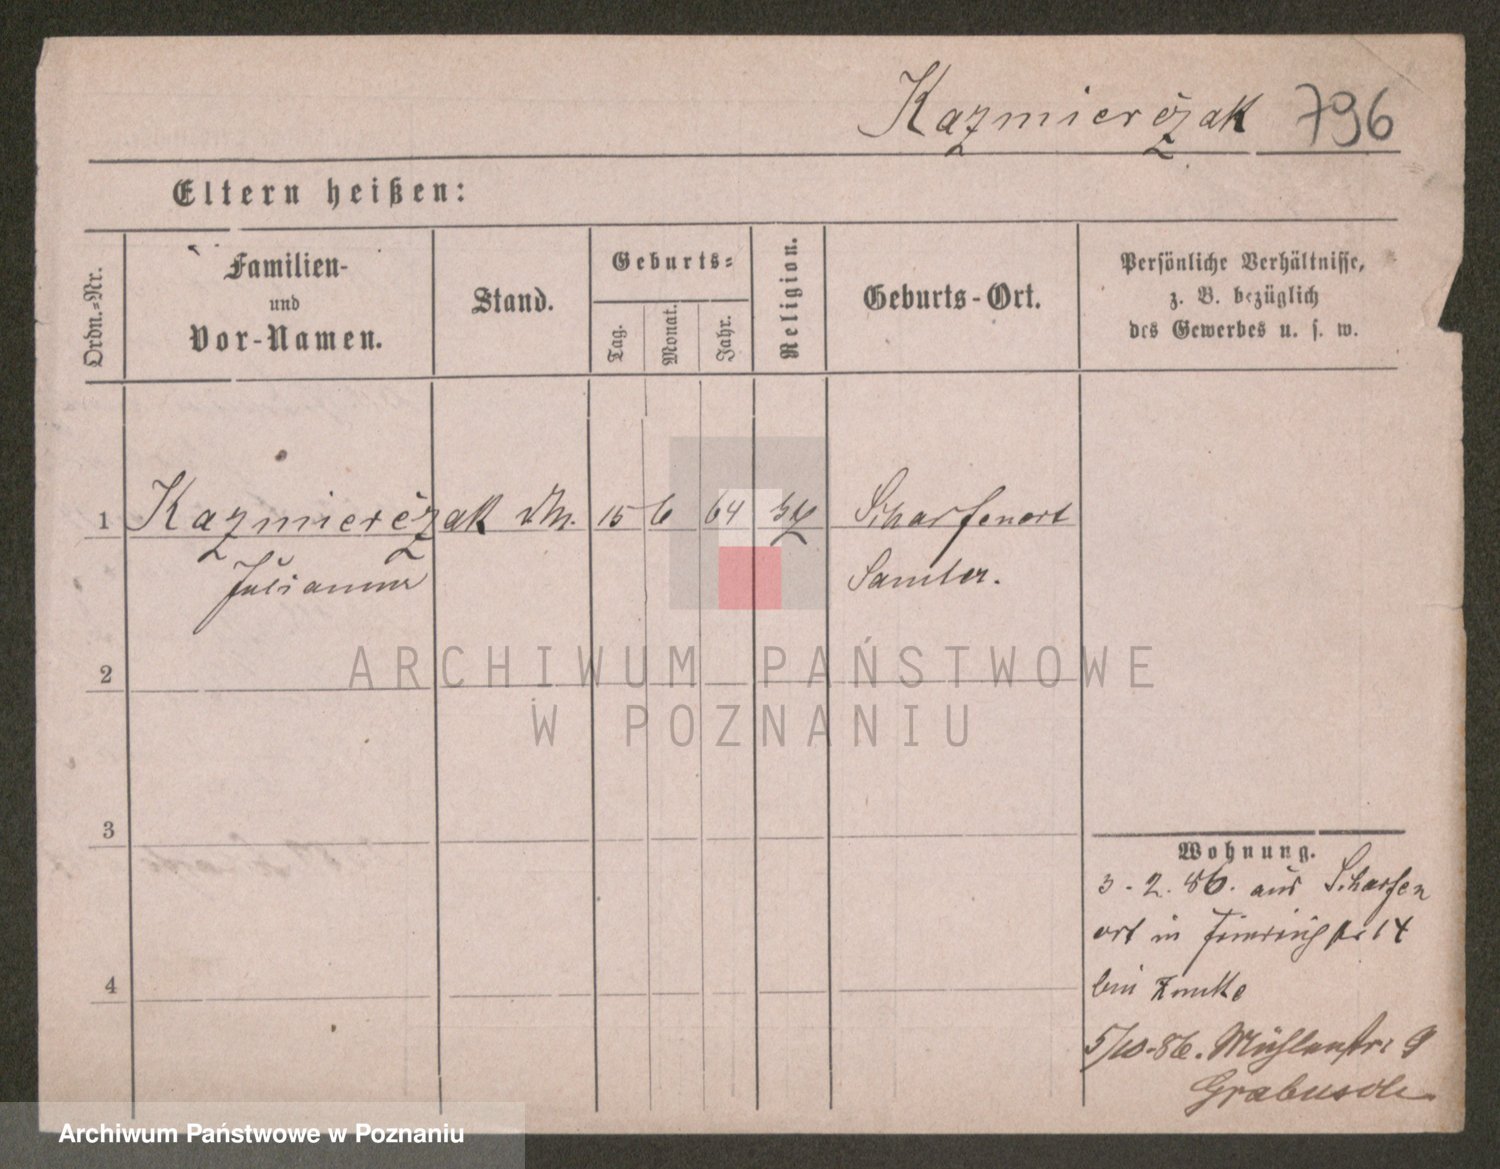 Kazmierčzak 796
Eltern heißen:
Ordn.-Nr.
Familien-
und
Vor-Namen.
Stand.
Geburts-
Tag.
Monat.
Jahr.
Religion.
Geburts-Ort.
Persönliche Verhältnisse,
z. B. bezüglich
des Gewerbes u. s. w.
1 Kazmierčzak 15 6 64 Scharfenort
Julianna Samter.
2
ARCHIWUM PAŃSTWOWE
W POZNANIU
3
Wohnung.
3. 2. 86. aus Scharfen
ort in 14
bei
4
5/10. 86. Mühlenstr. 9
Archiwum Państwowe w Poznaniu